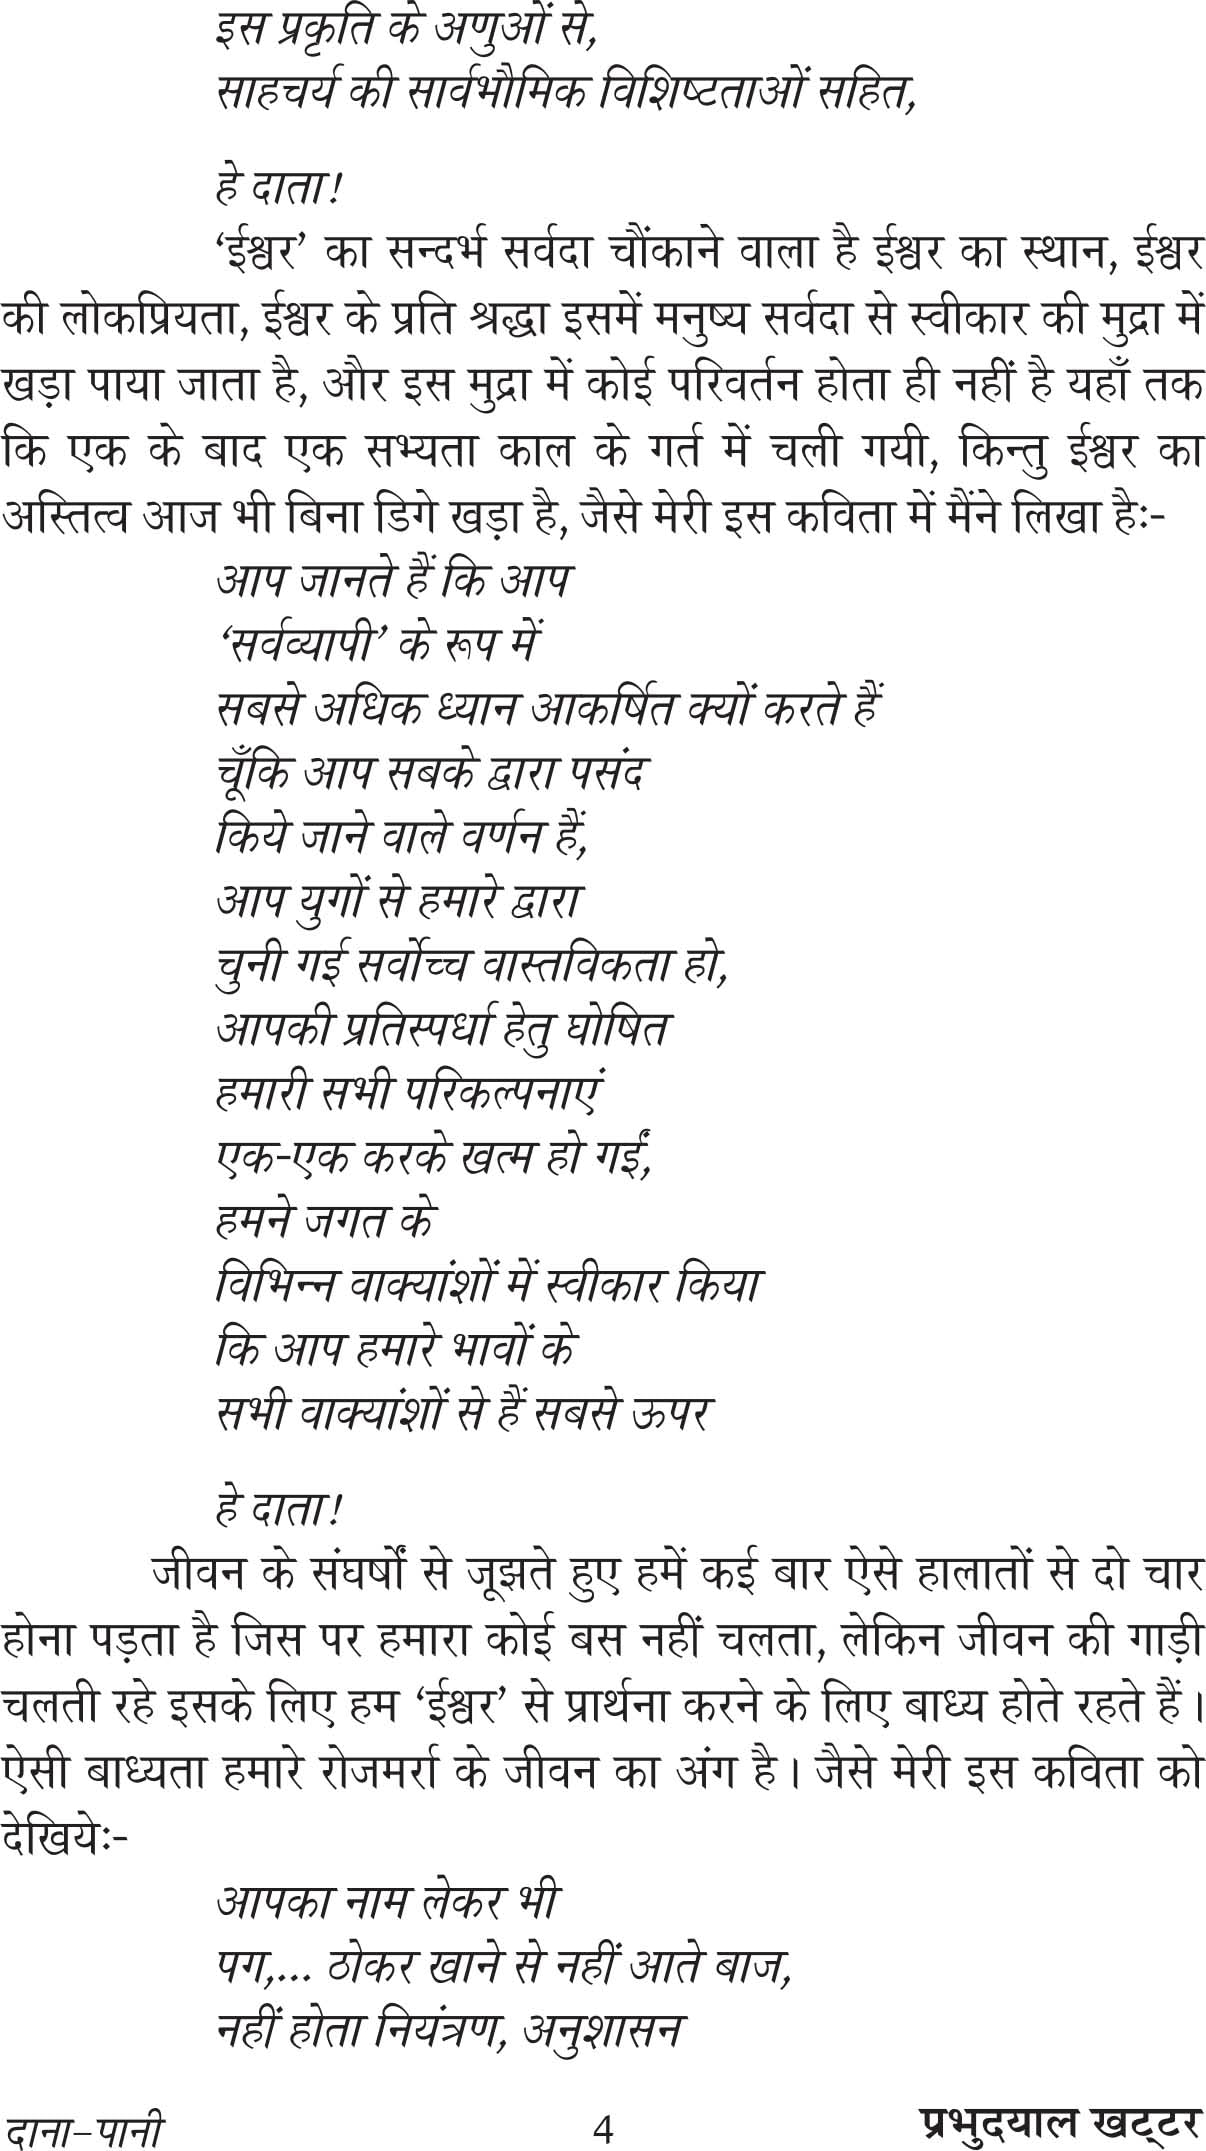 इस प्रकृति के अणुओं से,
साहचर्य की सार्वभौमिक विशिष्टताओं सहित,
हे दाता!
‘ईश्वर’ का सन्दर्भ सर्वदा चौंकाने वाला है ईश्वर का स्थान, ईश्वर
की लोकप्रियता, ईश्वर के प्रति श्रद्धा इसमें मनुष्य सर्वदा से स्वीकार की मुद्रा में
खड़ा पाया जाता है, और इस मुद्रा में कोई परिवर्तन होता ही नहीं है यहाँ तक
कि एक के बाद एक सभ्यता काल के गर्त में चली गयी, किन्तु ईश्वर का
अस्तित्व आज भी बिना डिगे खड़ा है, जैसे मेरी इस कविता में मैंने लिखा हैः-
आप जानते हैं कि आप
‘सर्वव्यापी’ के रूप में
सबसे अधिक ध्यान आकर्षित क्यों करते हैं
चूँकि आप सबके द्वारा पसंद
किये जाने वाले वर्णन हैं,
आप युगों से हमारे द्वारा
चुनी गई सर्वोच्च वास्तविकता हो,
आपकी प्रतिस्पर्धा हेतु घोषित
हमारी सभी परिकल्पनाएं
एक-एक करके खत्म हो गईं,
हमने जगत के
विभिन्न वाक्यांशों में स्वीकार किया
कि आप हमारे भावों के
सभी वाक्यांशों से हैं सबसे ऊपर
हे दाता!
जीवन के संघर्षों से जूझते हुए हमें कई बार ऐसे हालातों से दो चार
होना पड़ता है जिस पर हमारा कोई बस नहीं चलता, लेकिन जीवन की गाड़ी
चलती रहे इसके लिए हम ‘ईश्वर’ से प्रार्थना करने के लिए बाध्य होते रहते हैं।
ऐसी बाध्यता हमारे रोजमर्रा के जीवन का अंग है। जैसे मेरी इस कविता को
देखियेः-
आपका नाम लेकर भी
पग,... ठोकर खाने से नहीं आते बाज,
नहीं होता नियंत्रण, अनुशासन
दाना–पानी 4 प्रभुदयाल खट्टर